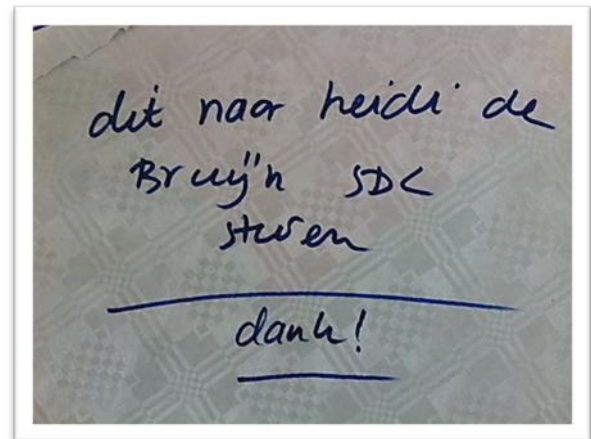 dit naar heidi de
Bruijn SDC
sturen
dank!